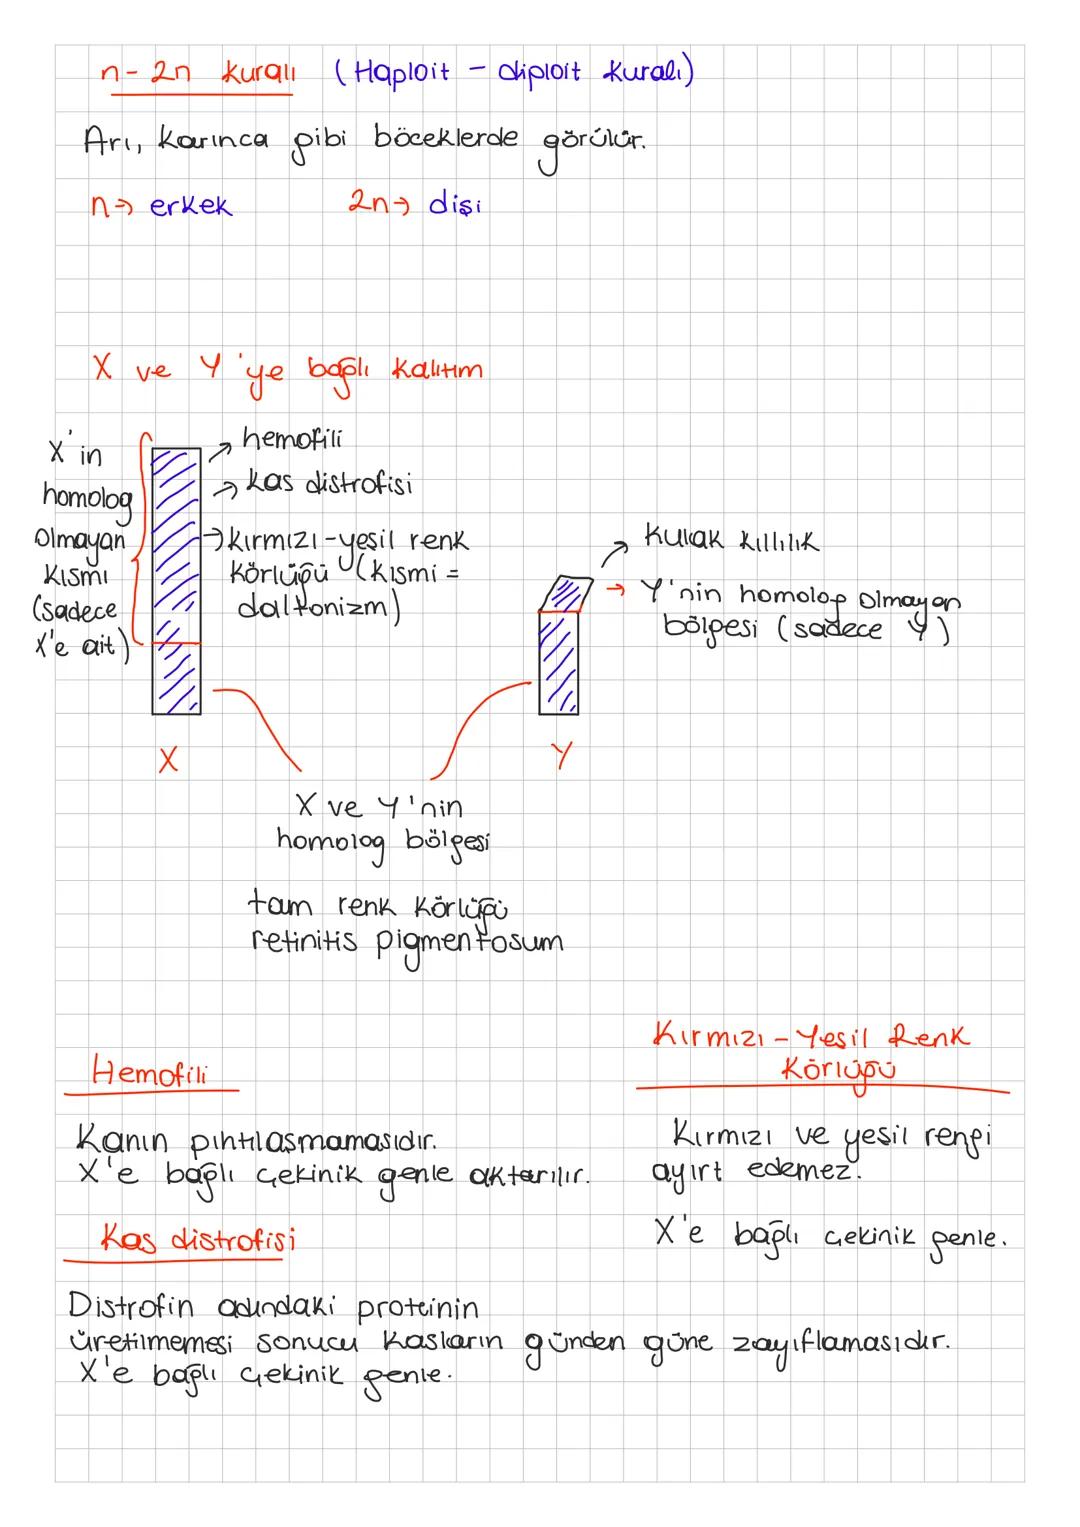 n - 2n kuralı (Haploit - diploit kuralı)
Arı, karınca gibi böceklerde görülür.
n → erkek 2n → dişi
X ve Y'ye bağlı kalıtım
X'in
homolog
olmayan
kısmı
(sadece
X'e ait)
→ hemofili
→ kas distrofisi
→ kırmızı-yeşil renk
körlüğü (kısmi =
daltonizm)
→ kulak kıllılık
→ Y'nin homolog olmayan
bölgesi (sadece Y)
X
Y
X ve Y'nin
homolog bölgesi
tam renk körlüğü
retinitis pigmentosum
Hemofili
Kanın pıhtılaşmamasıdır.
X'e bağlı çekinik genle aktarılır.
Kırmızı - Yesil Renk
Körlüğü
Kırmızı ve yesil rengi
ayırt edemez.
X'e bağlı çekinik genle.
Kas distrofisi
Distrofin adındaki proteinin
üretilmemesi sonucu kasların günden güne zayıflamasıdır.
X'e bağlı çekinik genle.